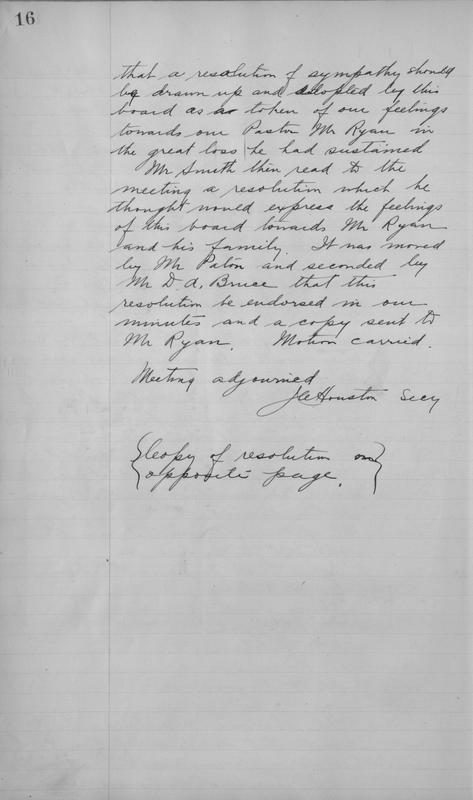 16
that a resolution of sympathy should
be drawn up and adopted by this
board as a token of our feelings
towards our Pastor Mr Ryan in
the great loss he had sustained
Mr Smith then read to the
meeting a resolution which he
thought would express the feelings
of this board towards Mr Ryan
and his family. It was moved
by Mr Paton and seconded by
Mr D. A. Bruce that this
resolution be endorsed in our
minutes and a copy sent to
Mr Ryan. Motion carried.
Meeting adjourned
Houston Secy
{Copy of resolution on}
{opposite page.}